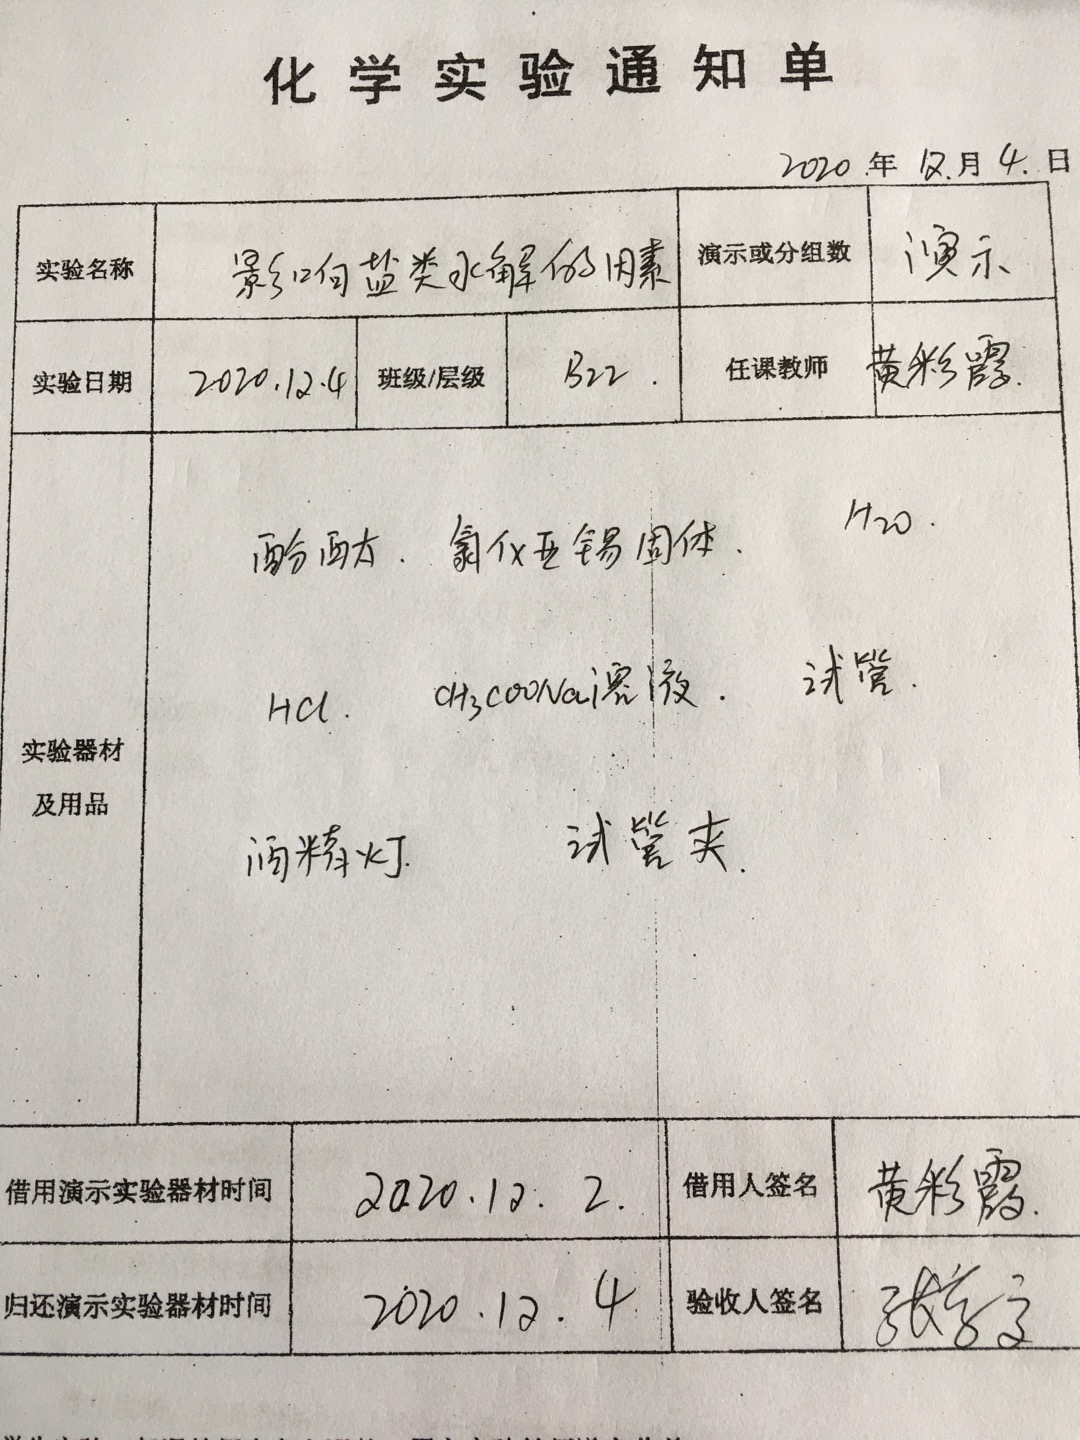 化学实验通知单
2020年12月4.日
实验名称 影响盐类水解的因素 演示或分组数 演示
实验日期 2020.12.4 班级/层级 B22. 任课教师 黄彩霞.
酚酞. 氯化亚锡固体. H2O.
HCl. CH3COONa溶液. 试管.
实验器材
及用品
酒精灯. 试管夹.
借用演示实验器材时间 2020.12.2. 借用人签名 黄彩霞.
归还演示实验器材时间 2020.12.4 验收人签名